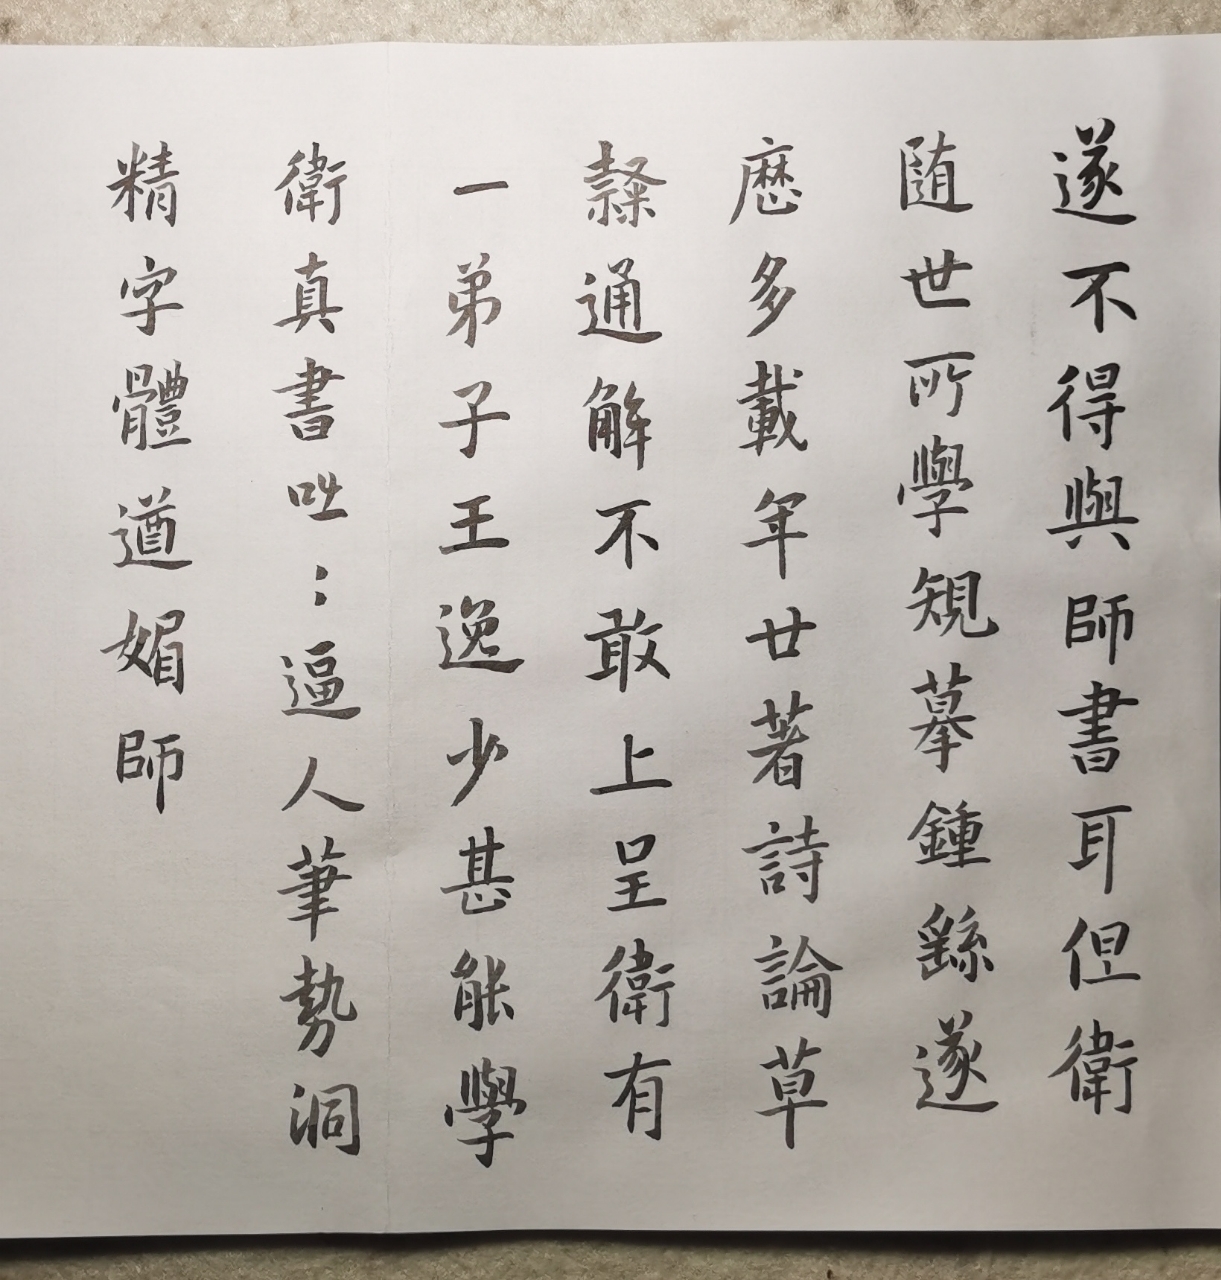 遂不得與師書耳但衛
随世所學規摹鍾繇遂
歷多載年廿著詩論草
隸通解不敢上呈衛有
一弟子王逸少甚能學
衛真書咄〻逼人筆勢洞
精字體遒媚師